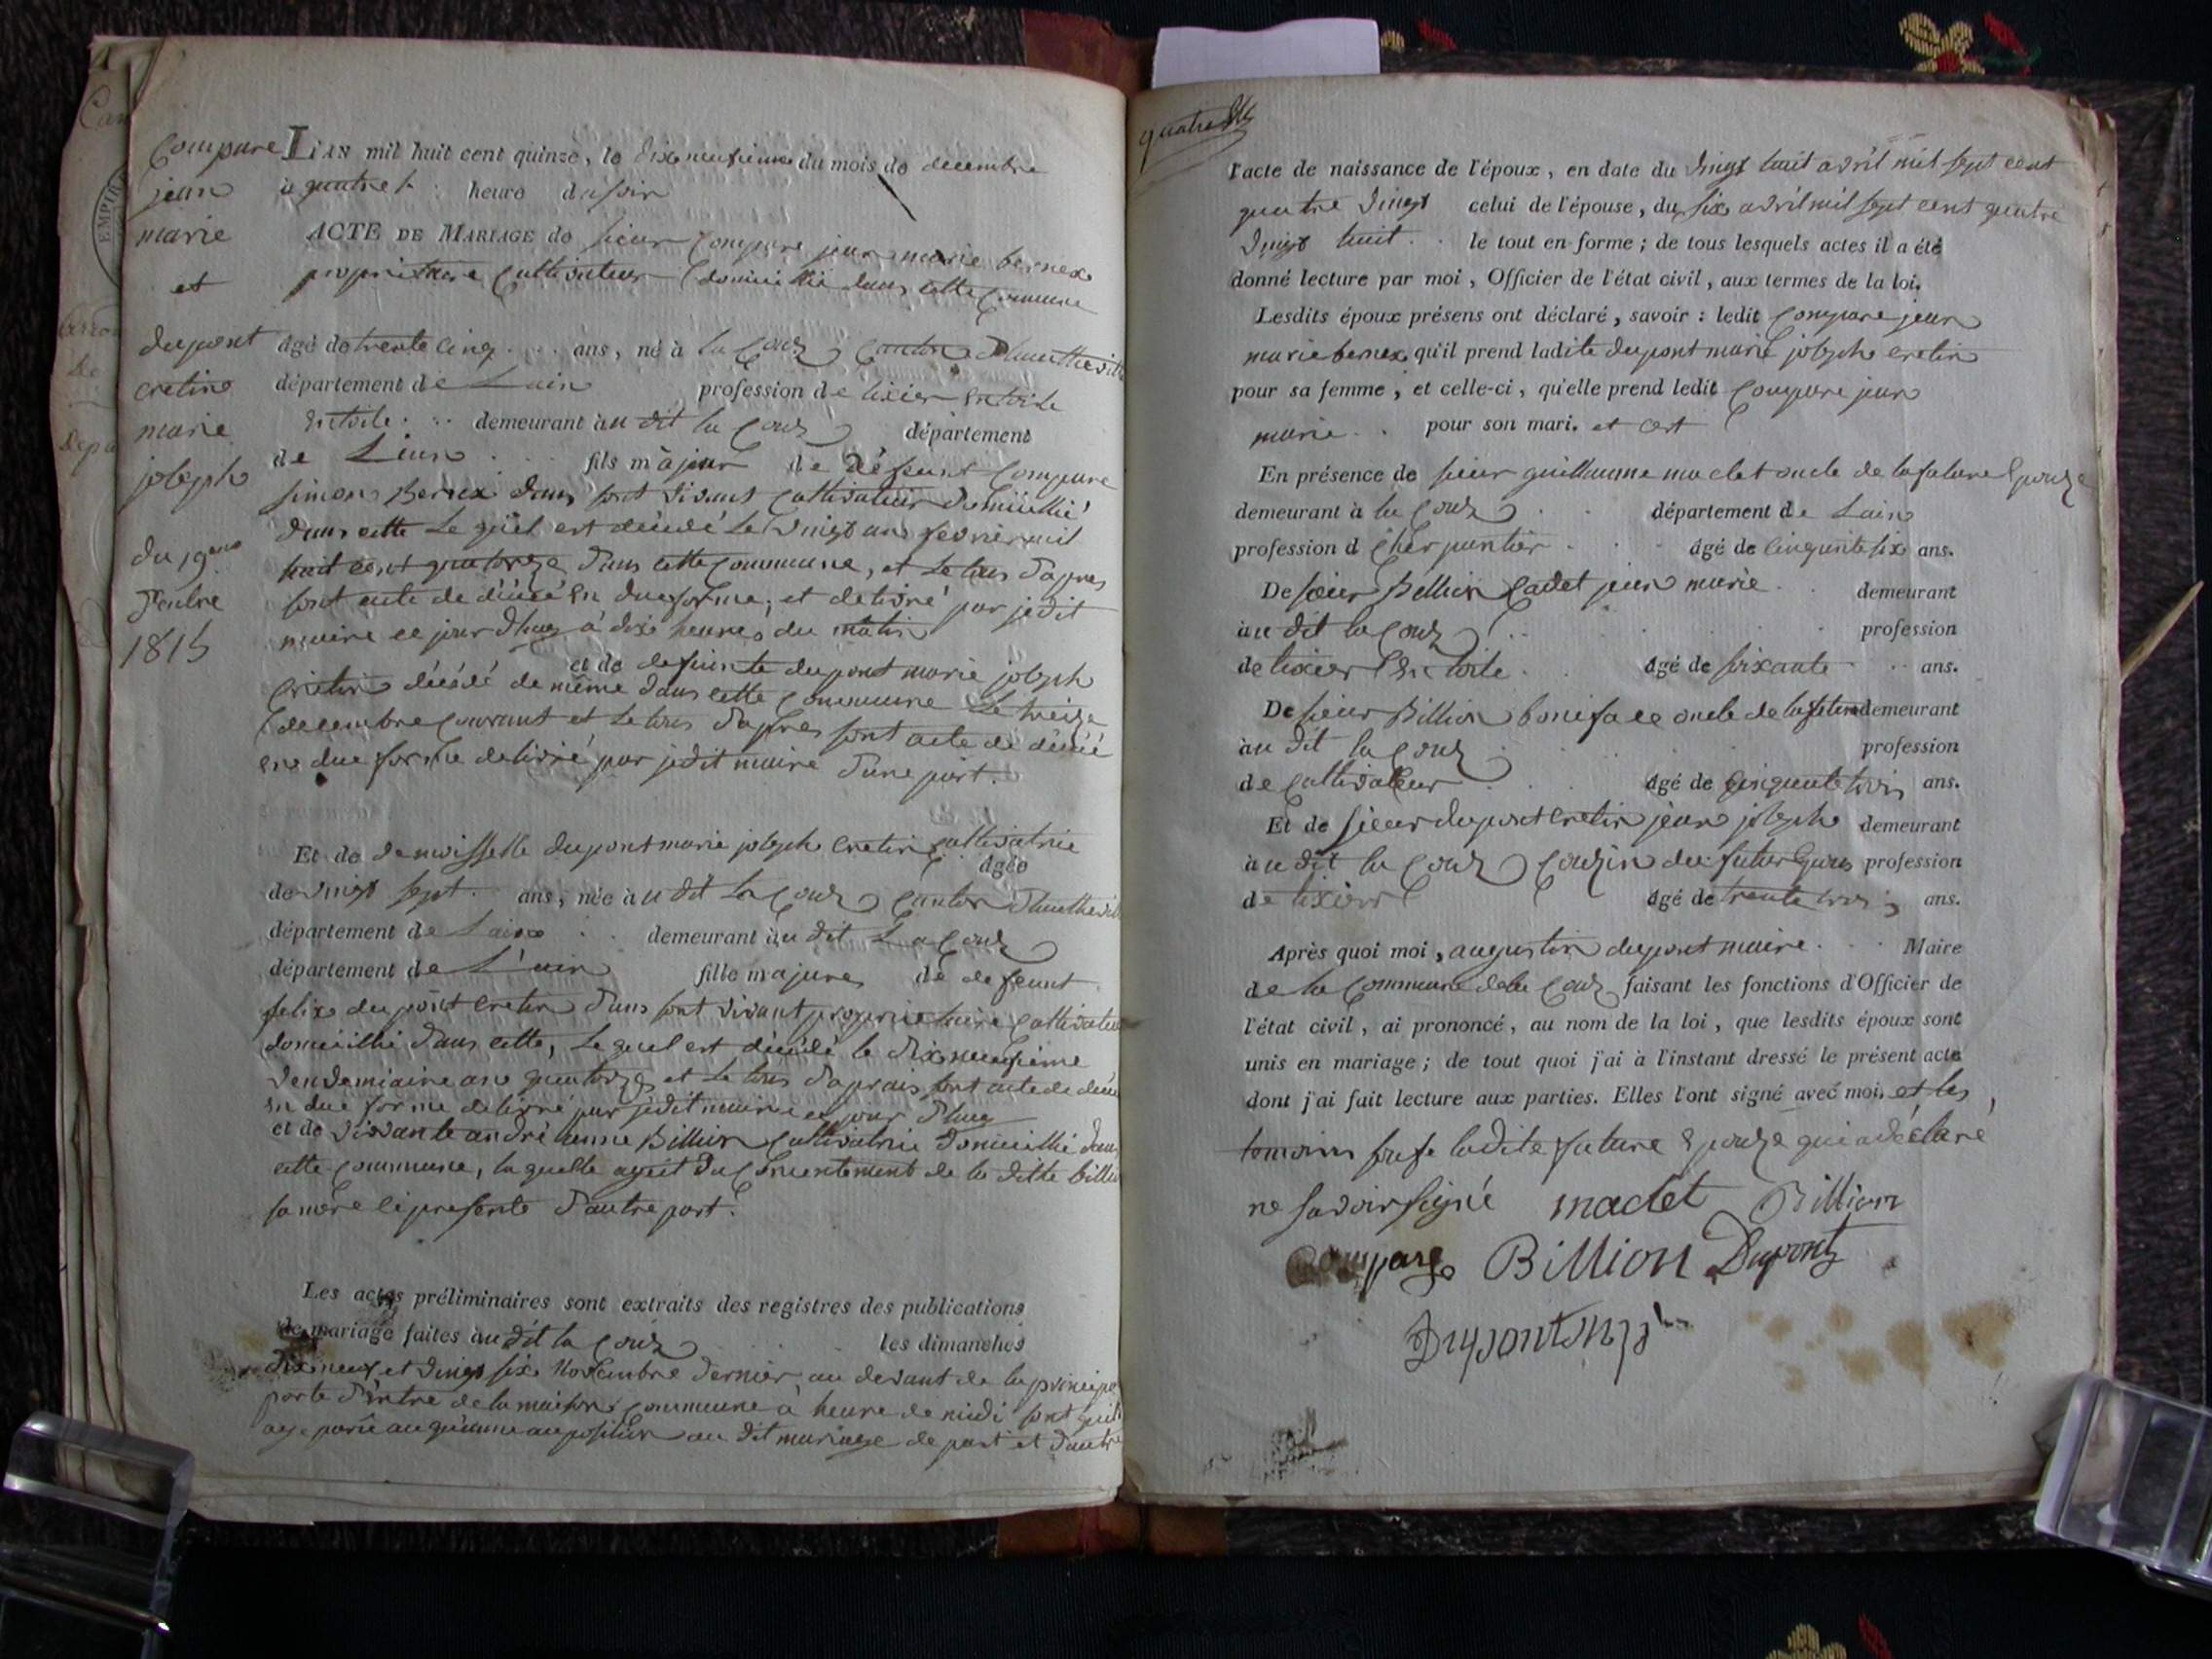 Compare
jean
marie
et
dupont
cretin
marie
joseph
du 19eme
Xembre
1815
L'AN mil huit cent quinze, le dix neufieme du mois de decembre
à quatre heure du soir
ACTE DE MARIAGE de sieur Compare jean marie bernex
propriétaire Cultivateur domicilié dans cette Commune
âgé de trente cinq ans, né à la Coux Canton
département de Lain profession de tixier en toile
demeurant à u dit la Coux département
de Lain fils majeur de défeunt Compare
simon Bernex dans sont vivant Cultivateur domicillié
dans cette Le quel est décédé Le vingt un fevrier mil
huit cent quatorze dans cette Commune, et Le tous d'apres
sont acte de décée en due forme, et delivré par jedit
maire ce jour d'huy à dix heures du matin
et de defeunte dupont marie joseph
Cretin décédé de même dans cette Commune Le treize
decembre Courant et Le tous d'apres sont acte de décée
en due forme delivré par jedit maire d'une part.
Et de demoisselle dupont marie joseph cretin Cultivatrice
âgée
de vingt sept ans, née à u dit La Coux Canton
département de Lain demeurant à u dit La Coux
département de L'ain fille majure de defeunt
felix dupont cretin dans sont vivant proprietaire Cultivateur
domicillié dans cette, Le quel est décédé le dix neufième
vendemiaire an quatorze et Le tous d'aprais sont acte de décée
en due forme delivré par jedit maire ce jour d'huy
et de vivante andré anne Billion Cultivatrice domicillié dans
cette Commune, la quelle agit du Consentement de la ditte billion
sa mère si presente d'autre part.
Les actes préliminaires sont extraits des registres des publications
de mariage faites à u dit la Coux les dimanches
dix neuf et vingt six Novembre dernier au devant de la principe
porte d'entre de la maison Commune à heure de midi sont quil
aye parû auqu'une auposition au dit mariage de part et d'autre
l'acte de naissance de l'époux, en date du vingt huit avril mil sept cent
quatre vingt celui de l'épouse, du six avril mil sept cent quatre
vingt huit. le tout en forme; de tous lesquels actes il a été
donné lecture par moi, Officier de l'état civil, aux termes de la loi.
Lesdits époux présens ont déclaré, savoir : ledit Compare jean
marie bernex qu'il prend ladite dupont marie joseph cretin
pour sa femme, et celle-ci, qu'elle prend ledit Compare jean
marie pour son mari. et cest
En présence de sieur guillaume maclet oncle de la future Epouze
demeurant à la Coux département de Lain
profession d Cherpantier âgé de Cinquante six ans.
De sieur Billion Cadet jean marie demeurant
à u dit la Coux profession
de tixier En toile âgé de soixante ans.
De sieur Billion boniface oncle de la future demeurant
à u dit la Coux profession
de Cultivateur âgé de Cinquante trois ans.
Et de sieur dupont cretin jean joseph demeurant
à u dit la Coux Couzin du futur Epous profession
de tixier âgé de trente trois ans.
Après quoi moi, augustin dupont maire Maire
de la Commune de la Coux faisant les fonctions d'Officier de
l'état civil, ai prononcé, au nom de la loi, que lesdits époux sont
unis en mariage; de tout quoi j'ai à l'instant dressé le présent acte
dont j'ai fait lecture aux parties. Elles l'ont signé avec moi, et les
temoins sauf ladite future Epouze qui a déclaré
ne savoir signé maclet Billion
Compare Billion Dupont
Dupont